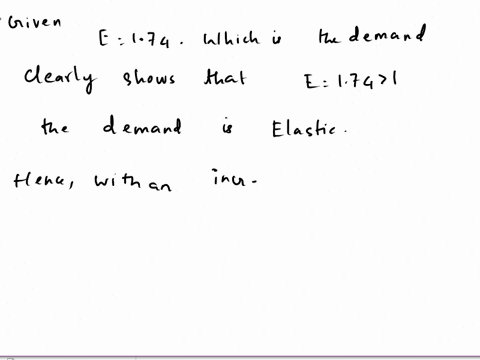 Given
E = 1.74. Which is the demand
Clearly shows that E = 1.74 > 1
the demand is Elastic.
Hence, with an incr-